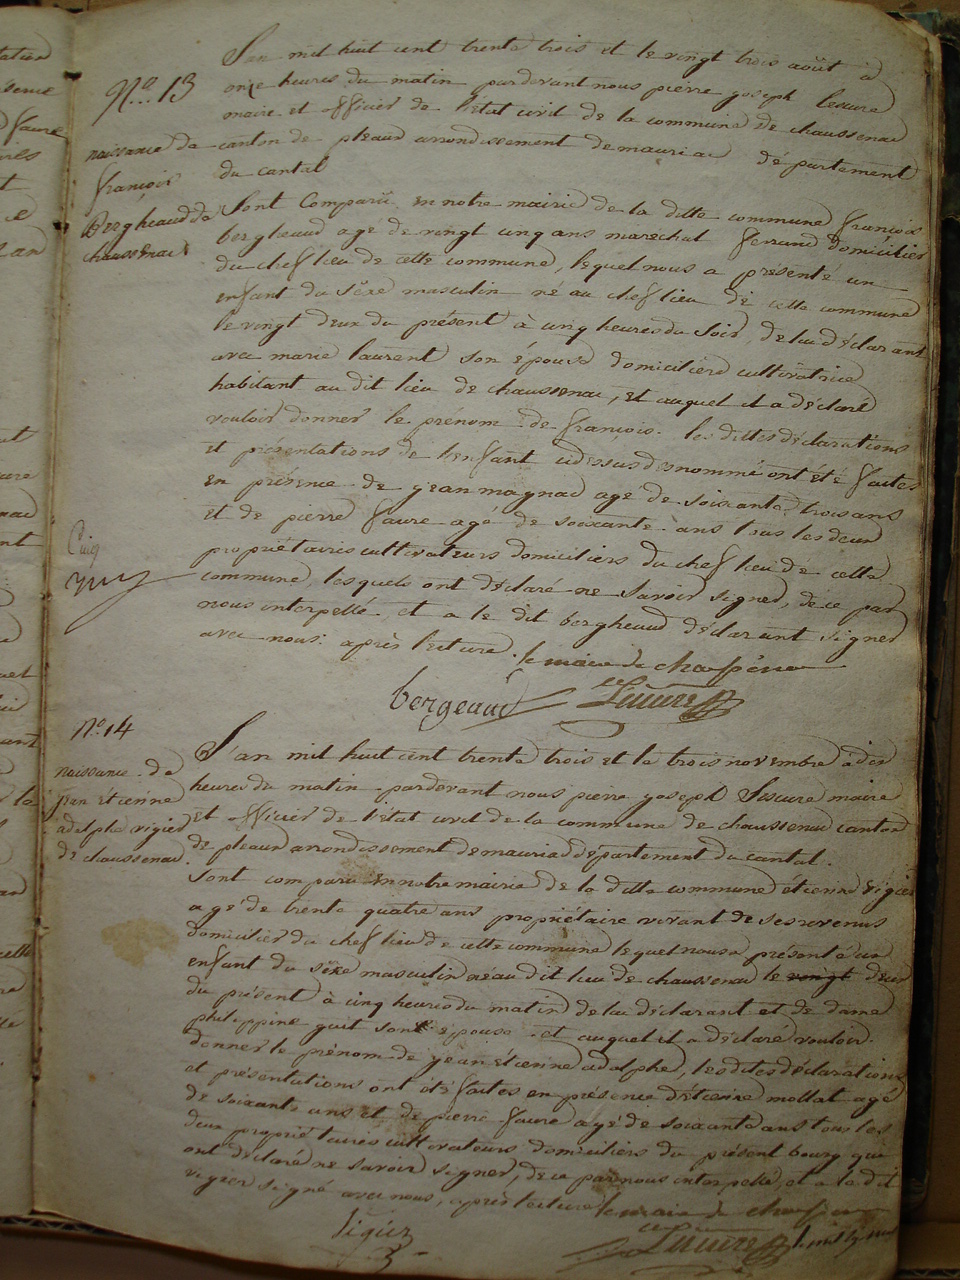 No. 13
naissance de
françois
Bergheaud de
chaussenac
L'an mil huit cent trente trois et le vingt trois août à
onze heures du matin pardevant nous pierre joseph lescure
maire et officier de l'état civil de la commune de chaussenac
canton de pleaud arrondissement de mauriac département
du cantal
Sont Comparû en notre mairie de la ditte commune françois
bergheaud agé de vingt cinq ans marechal ferrand domicilier
du chef lieu de cette commune, lequel nous a présenté un
enfant du sêxe masculin né au chef lieu de cette commune
le vingt deux du présent à cinq heures du soir, de lui déclarant
avec marie laurent son épouse domiciliere cultivatrice
habitant au dit lieu de chaussenac, et auquel il a déclaré
vouloir donner le prénom de françois. les dittes déclarations
et présentations de l'enfant cidessus denommé ont été faites
en présence de jean magnac agé de soixante trois ans
et de pierre faure agé de soixante ans tous les deux
propriétaires cultivateurs domiciliers du chef lieu de cette
commune, lesquels ont déclaré ne savoir signer, de ce par
nous interpellé, et a le dit bergheaud déclarant signer
avec nous: après lecture. le maire de chaussenac
bergeaud Lescure
No. 14
naissance de
jean Etienne
adolphe vigier
de chaussenac.
L'an mil huit cent trente trois et le trois novembre à dix
heures du matin pardevant nous pierre joseph Lescure maire
et officier de l'état civil de la commune de chaussenac canton
de pleaux arrondissement de mauriac département du cantal.
Sont comparu en notre mairie de la ditte commune étienne vigier
agé de trente quatre ans propriétaire vivant de ses revenus
domicilier du chef lieu de cette commune lequel nous a présenté un
enfant du sêxe masculin né au dit lieu de chaussenac le vingt deux
du présent à cinq heures du matin de lui déclarant et de dame
philippine guit son épouse et auquel il a déclaré vouloir
donner le prénom de jean étienne adolphe, les dites déclarations
et présentations ont été faites en présence d'étienne mollat agé
de soixante ans et de pierre faure agé de soixante ans tous les
deux propriétaires cultivateurs domiciliers du présent bourg qui
ont déclaré ne savoir signer, de ce par nous interpellé, et a le dit
vigier signé avec nous, après lecture le maire de
vigier Lescure